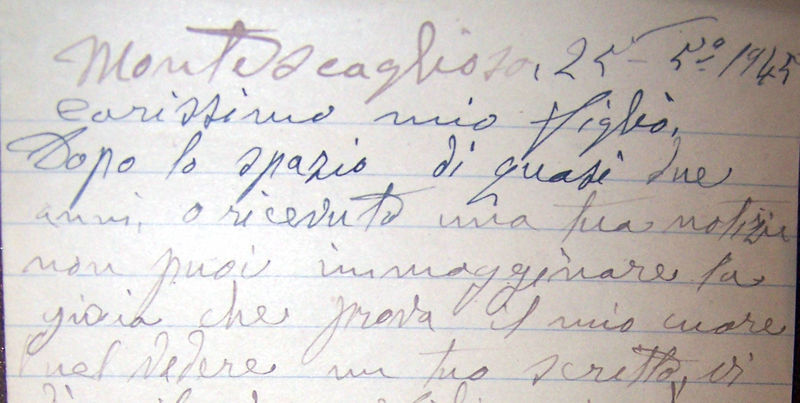 Montescaglioso, 25 - 5º 1945
Carissimo mio figlio,
Dopo lo spazio di quasi due
anni, o ricevuto una tua notizia
non puoi immagginare la
gioia che prova il mio cuore
nel vedere un tuo scritto, vi